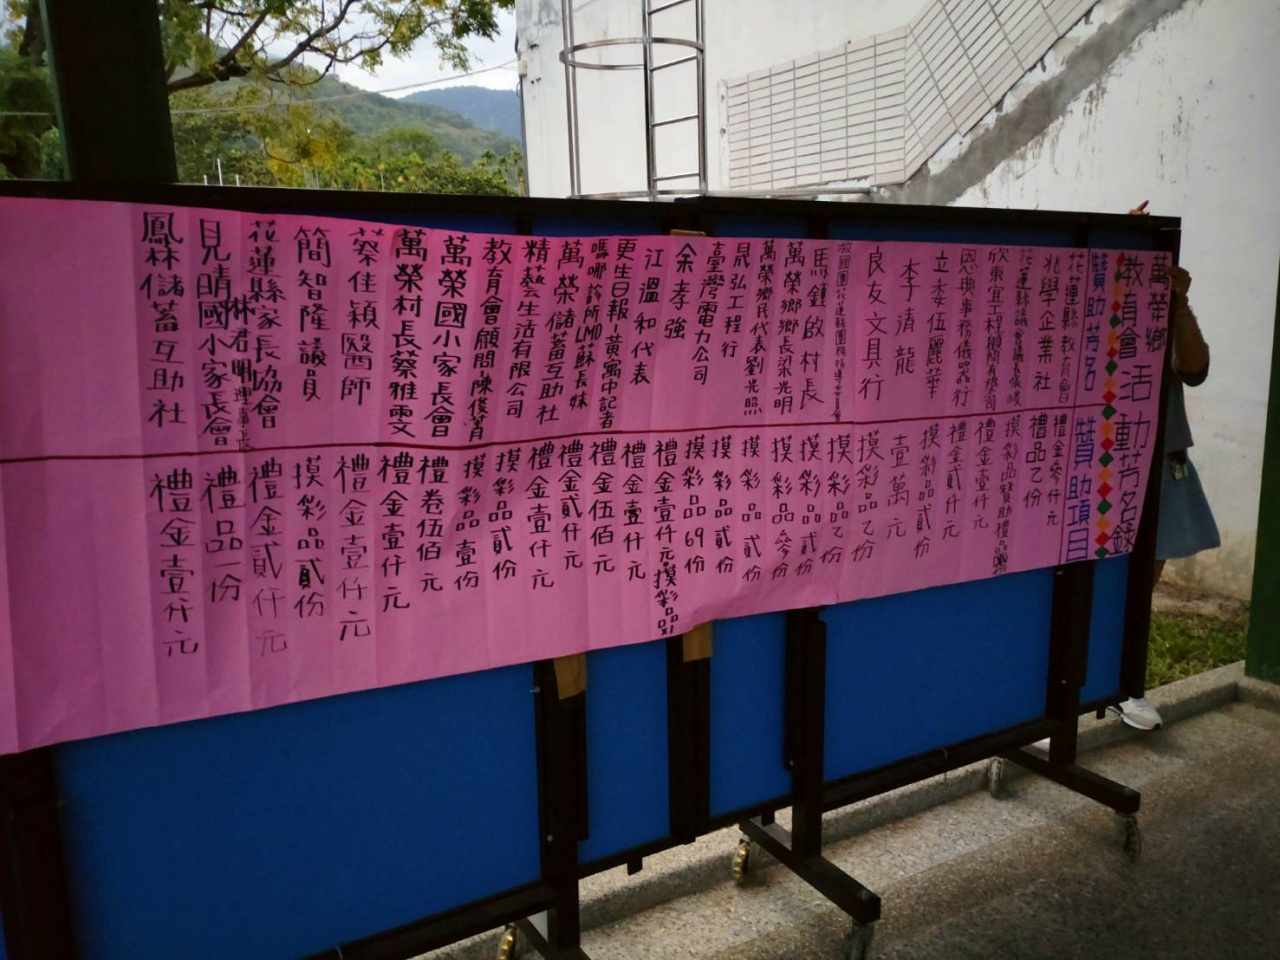 萬榮鄉
教育會活動芳名錄
贊助芳名 贊助項目
花蓮縣教育會 禮金參仟元
北學企業社 禮品乙份
花蓮縣議會議長 摸彩品
欣東宜工程顧問有限公司 禮金壹仟元
恩典事務儀器行 禮金貳仟元
立委伍麗華 摸彩品貳份
李清龍 壹萬元
良友文具行 摸彩品乙份
救國團花蓮縣團 摸彩品乙份
馬鍾啟村長 摸彩品貳份
萬榮鄉鄉長梁光明 摸彩品參份
萬榮鄉民代表劉光照 摸彩品貳份
晟弘工程行 摸彩品貳份
臺灣電力公司 摸彩品69份
余孝強 禮金壹仟元.摸彩品
江溫和代表 禮金壹仟元
更生日報-黃寓中記者 禮金伍佰元
嗎哪診所LMO蘇長妹 禮金貳仟元
萬榮儲蓄互助社 禮金壹仟元
精藝生活有限公司 摸彩品貳份
教育會顧問陳俊菁 摸彩品壹份
萬榮國小家長會 禮卷伍佰元
萬榮村長蔡雅雯 禮金壹仟元
蔡佳穎醫師 禮金壹仟元
簡智隆議員 摸彩品貳份
花蓮縣家長協會 林君明理事長 禮金貳仟元
見晴國小家長會 禮品一份
鳳林儲蓄互助社 禮金壹仟元